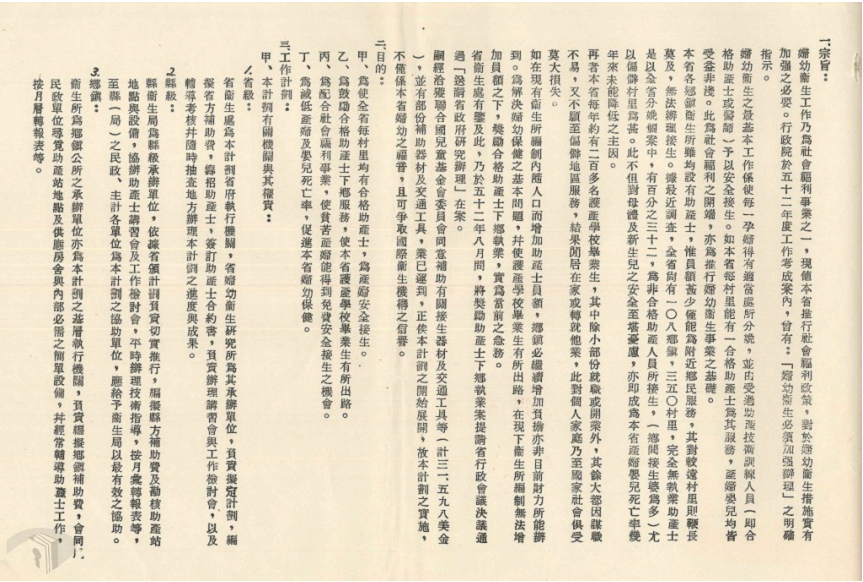 一、宗旨：
婦幼衛生工作乃為社會福利事業之一，現値本省推行社會福利政策，對於婦幼衛生措施實有
加強之必要。行政院於五十二年度工作考成案內，曾有：「婦幼衛生必須加强辦理」之明確
指示。
婦幼衛生之最基本工作係使每一孕婦得有適當處所分娩，並由受過助產技術訓練人員（即合
格助產士或醫師）予以安全接生。如本省每村里能有一合格助產士為其服務，產婦嬰兒均皆
受益非淺。此為社會福利之開端，亦為推行婦幼衛生事業之基礎。
本省各鄉鎮衛生所雖均設有助產士，惟員額甚少僅能為附近鄉民服務，其對較遠村里則鞭長
莫及，無法辦理接生。據最近調查，全省尚有一〇八鄉鎮，三五〇村里，完全無執業助產士
是以全省分娩個案中，有百分之三十二，為非合格助產人員所接生，（鄉間接生婆為多）尤
以偏僻村里為甚。此不但對母體及新生兒之安全至堪憂慮，亦即成為本省產婦嬰兒死亡率幾
年來未能降低之主因。
再者本省每年約有二百多名護產學校畢業生，其中除小部份就職或開業外，其餘大都因謀職
不易，又不願至偏僻地區服務，結果閒居在家或轉就他業，此對個人家庭乃至國家社會俱受
莫大損失。
如在現有衛生所編制內應人口而增加助產士員額，鄉鎮必繼續增加負擔亦非目前財力所能辦
到。為解決婦幼保健之基本問題，并使護產學校畢業生有所出路，在現下衛生所編制無法增
加員額之下，獎勵合格助產士下鄉執業，實為當前之急務。
省衛生處有鑒及此，乃於五十二年八月間，將獎勵助產士下鄉執業案提請省行政會議決議通
過「送請省政府研究辦理」在案。
嗣經洽獲聯合國兒童基金會委員會同意補助有關接生器材及交通工具等（計三一、五九八美金
），並有部份補助器材及交通工具，業已運到，正俟本計劃之開始展開，故本計劃之實施，
不僅係本省婦幼之福音，且可爭取國際衛生機構之信譽。
二、目的：
甲、為使全省每村里均有合格助產士，為產婦安全接生。
乙、為鼓勵合格助產士下鄉服務，使本省護產學校畢業生有所出路。
丙、為配合社會福利事業，使貧苦產婦能得到免費安全接生之機會。
丁、為減低產婦及嬰兒死亡率，促進本省婦幼保健。
三、工作計劃：
甲、本計劃有關機關與其權責：
1.省級：
省衛生處為本計劃省府執行機關，省婦幼衛生研究所為其承辦單位，負責擬定計劃，編
擬省方補助費，籌招助產士，簽訂助產士合約書，負責辦理講習會與工作檢討會，以及
輔導考核并隨時抽查地方辦理本計劃之進度與成果。
2.縣級：
縣衛生局為縣級承辦單位，依據省頒計劃負責切實推行，編擬縣方補助費及勘核助產站
地點與設備，協辦助產士講習會及工作檢討會，平時辦理技術指導，按月彙轉報表等，
至縣（局）之民政、主計各單位為本計劃之協助單位，應給予衛生局以最有效之協助。
3.鄉鎮：
衛生所為鄉鎮公所之承辦單位亦為本計劃之基層執行機關，負責編擬鄉鎮補助費，會同
民政單位尋覓助產站地點及供應房舍與內部必需之簡單設備，并經常輔導助產士工作，
按月層轉報表等。